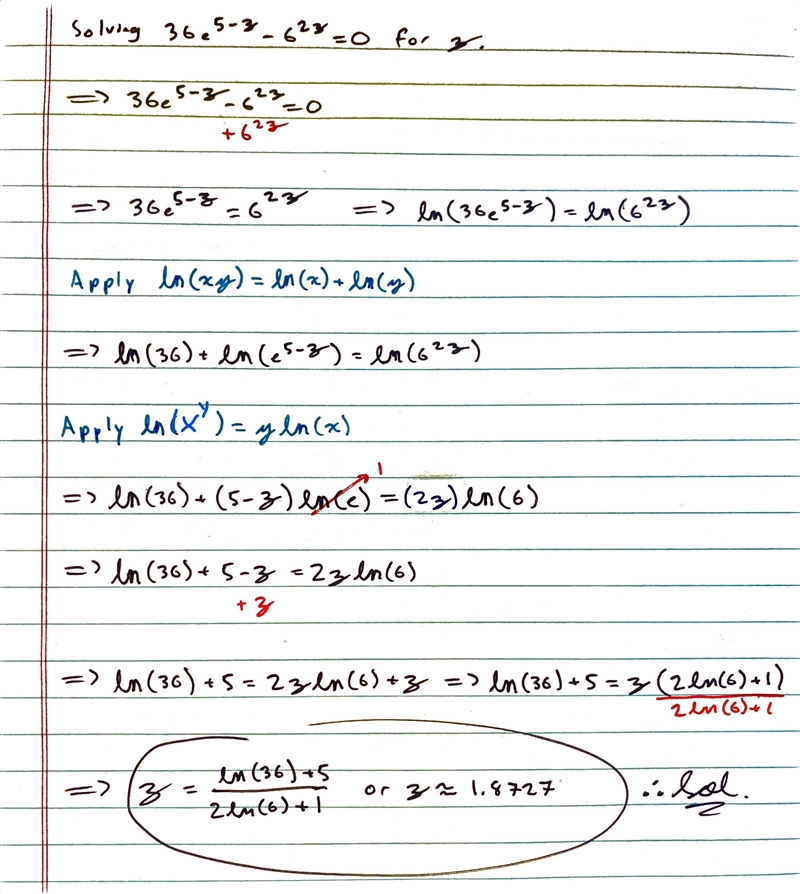 Solving 36e^(5-z) - 6^(2z) = 0 for z.
=> 36e^(5-z) - 6^(2z) = 0
+6^(2z)
=> 36e^(5-z) = 6^(2z) => ln(36e^(5-z)) = ln(6^(2z))
Apply ln(xy) = ln(x) + ln(y)
=> ln(36) + ln(e^(5-z)) = ln(6^(2z))
Apply ln(x^y) = y ln(x)
1
=> ln(36) + (5-z) ln(e) = (2z) ln(6)
=> ln(36) + 5 - z = 2z ln(6)
+ z
=> ln(36) + 5 = 2z ln(6) + z => ln(36) + 5 = z (2ln(6) + 1)
2ln(6) + 1
=> z = (ln(36) + 5)/(2ln(6) + 1) or z ≈ 1.8727 ∴ Sol.